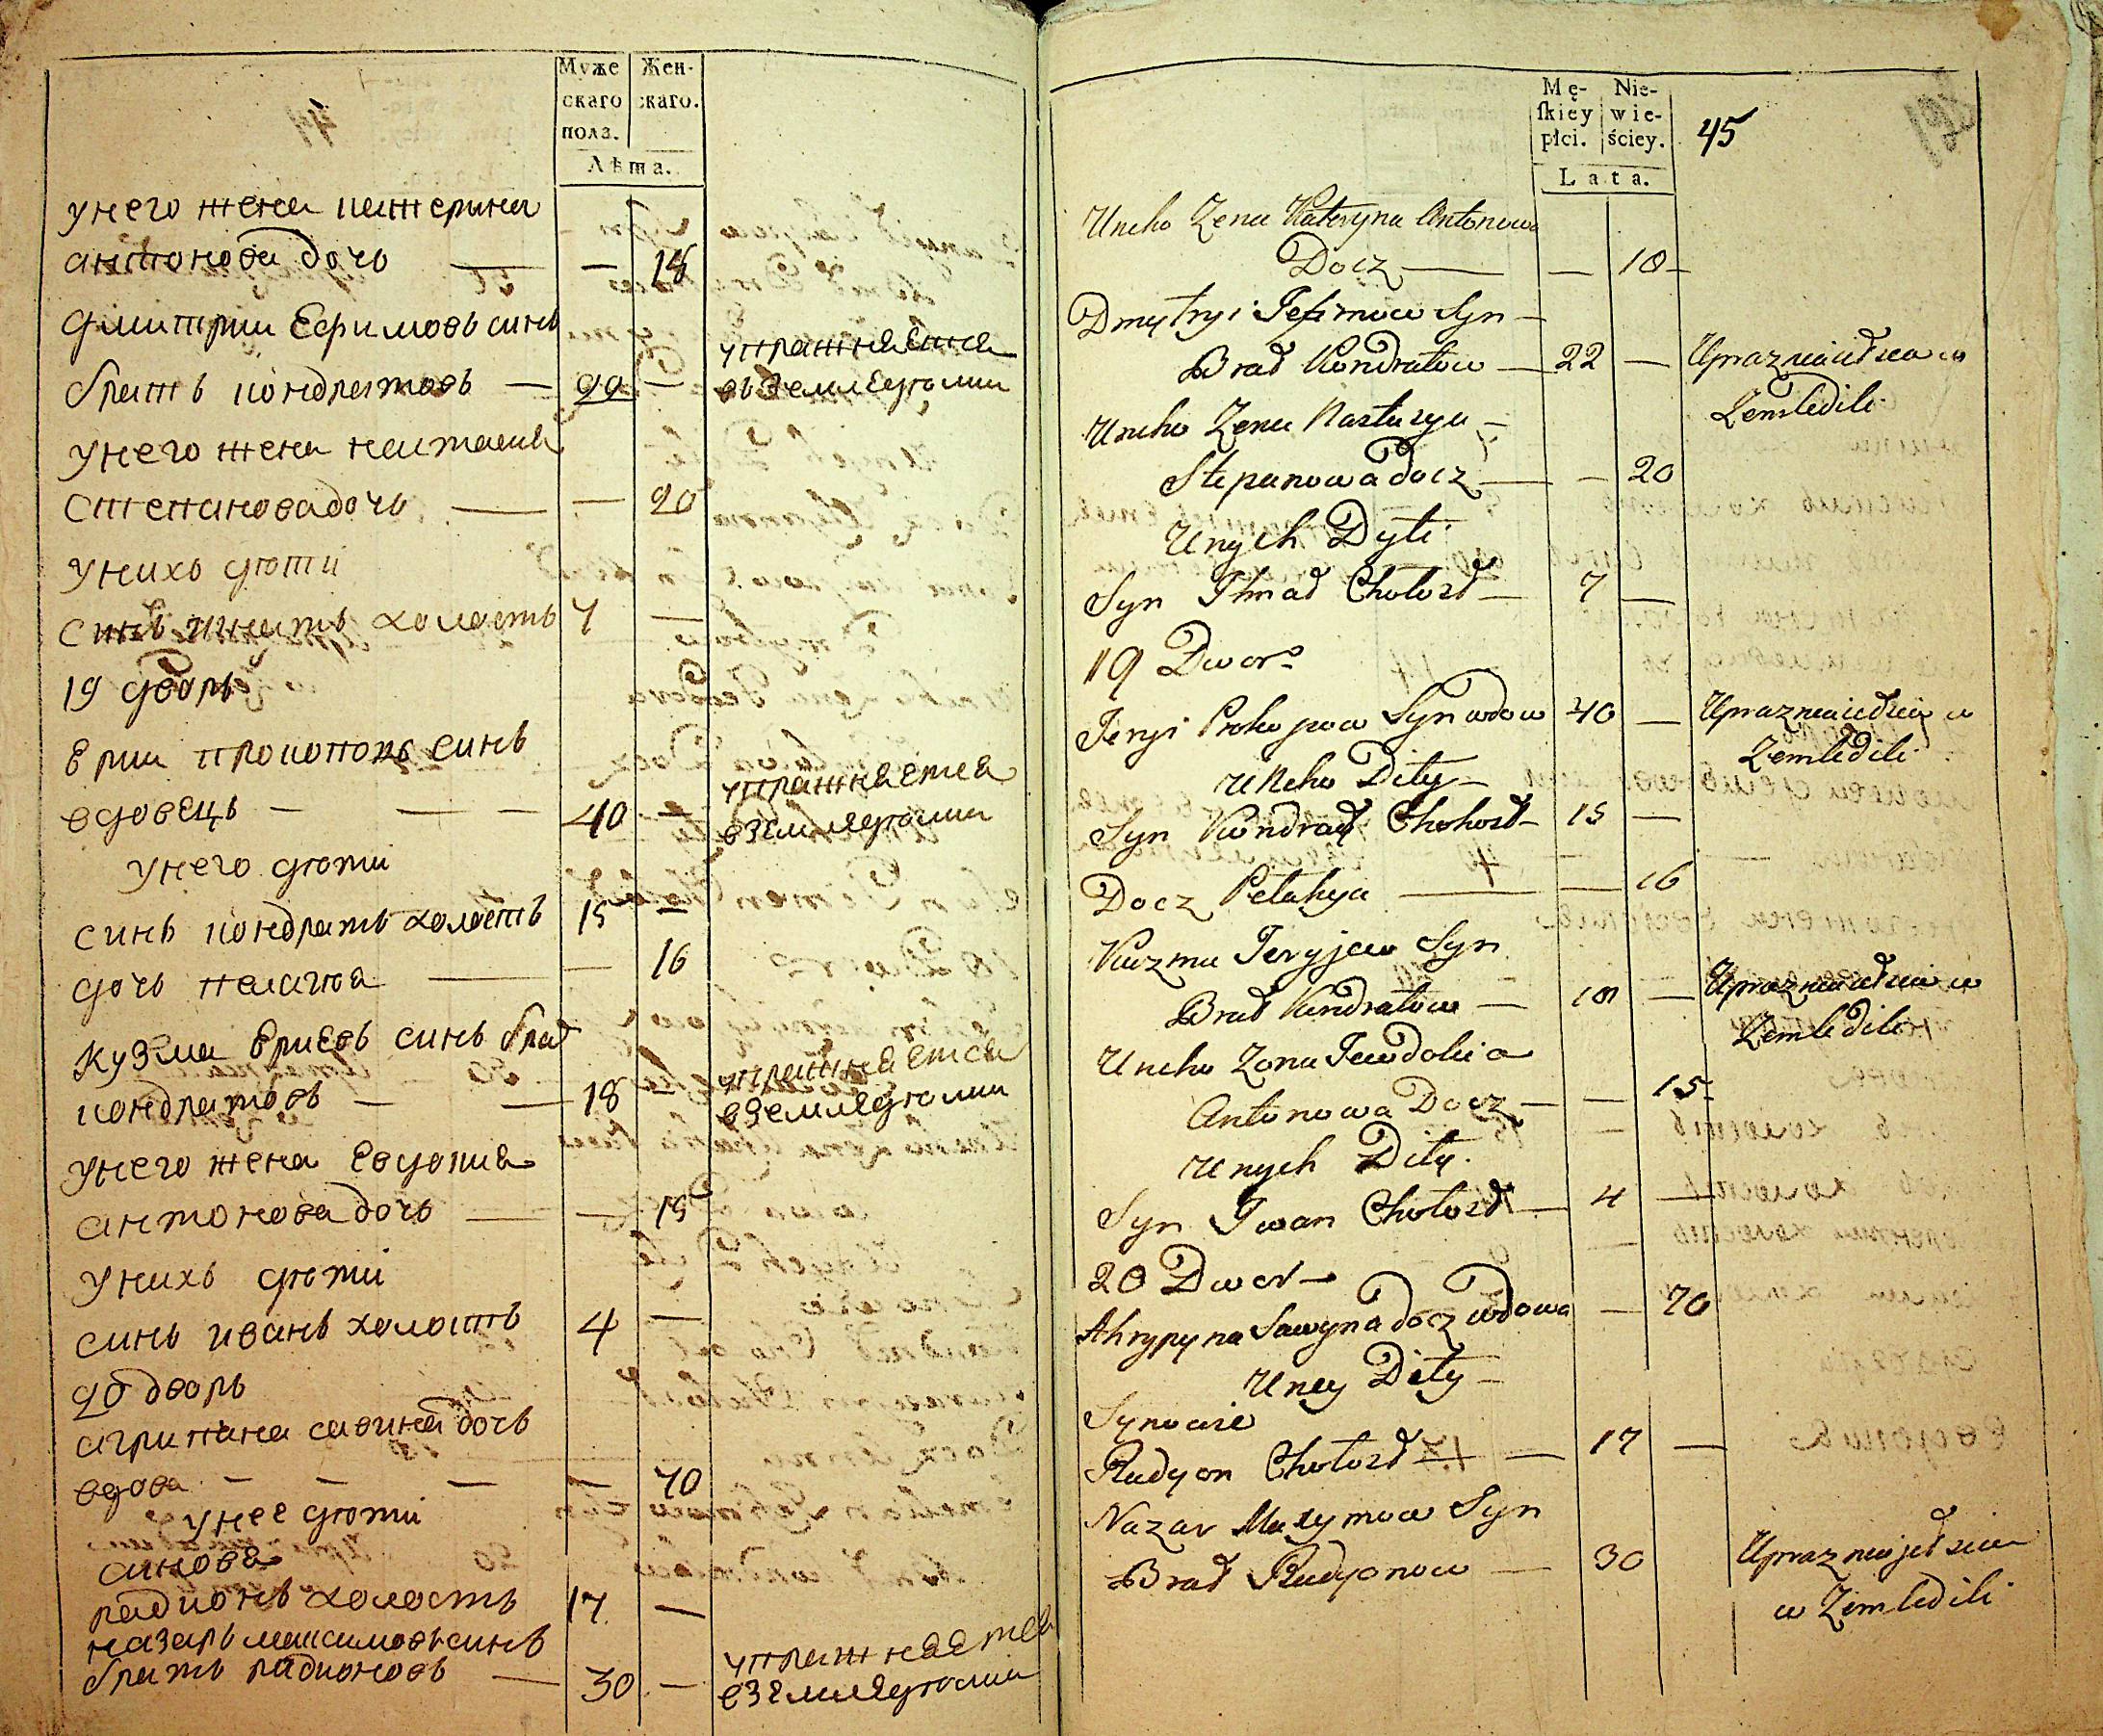 Муже
скаго
полз.
Жен-
скаго.
Лѣта.
унего жена катерина
антонова дочь — — 18
дмитрии Ефимовъ синъ
братъ кондратовъ — 22 — упражняется
въ Земледѣлии
унего жена настасия
степановадочь — — 20
унихъ дѣти
синъ игнатъ холостъ 7 —
19 дворъ
Ерии прокоповъ синъ
вдовецъ — — — 40 — упражняется
вземледѣлии
унего дѣти
синъ кондратъ холостъ 15 —
дочь пелагия — — 16
кузма Ериевъ синъ брат
кондратовъ — — 18 — упражняется
вземледѣлии
унего жена Евдокия
антонова дочь — — 15
унихъ дѣти
синъ иванъ холостъ 4 —
20 дворъ
агрипина савина дочь
вдова — — — — 70
унее дѣти
синове
радионъ холостъ 17 —
назаръ максимовъ синъ
братъ радионовъ — 30 — упражняется
вземледѣлии
Mę-
ſkiey
płci.
Nie-
wie-
ściey.
Lata.
45
Uneho Zena Kateryna Antonowa
Docz — — 18 —
Dmytryi Jefimow Syn —
Brad Kondratow — 22 — Uprazniaiedsia w
Zemledili
Uneho Zena Nastazya —
Stepanowa docz — — 20
Unych Dyti
Syn Ihnad Chołosd — 7 —
19 Dwor
Jeryi Prokopow Syn wdow 40 — Uprazniaiedsia w
Zemledili
Uneho Dity —
Syn Kondrad Chołosd — 15 —
Docz Pelahya — — 16
Kuzma Jeryjew Syn
Brad Kondratow — 18 — Uprazniaiedsia w
Zemledili
Uneho Zona Jewdokia
Antonowa Docz — — 15
Unych Dity
Syn Iwan Chołosd — 4 —
20 Dwor —
Ahrypyna Sawyna docz wdowa — 70
Uney Dity —
Synowie
Radyon Chołosd — — 17 —
Nazar Maxymow Syn
Brad Radyonow — 30 Uprazniajedsia
w Zemledili